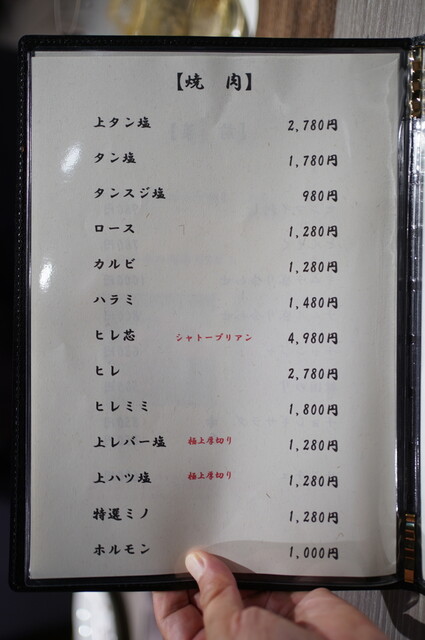 【焼 肉】
上タン塩 2,780円
タン塩 1,780円
タンスジ塩 980円
ロース 1,280円
カルビ 1,280円
ハラミ 1,480円
ヒレ芯 シャトーブリアン 4,980円
ヒレ 2,780円
ヒレミミ 1,800円
上レバー塩 極上厚切り 1,280円
上ハツ塩 極上厚切り 1,280円
特選ミノ 1,280円
ホルモン 1,000円